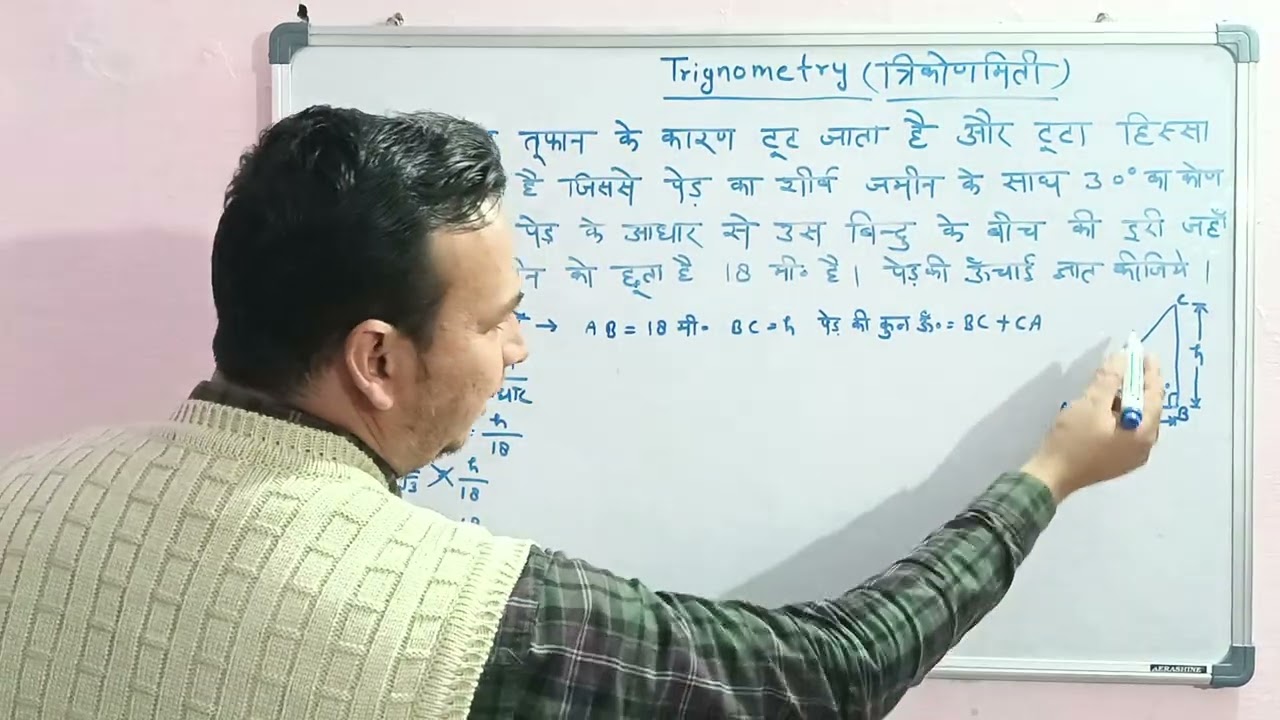 Trignometry (त्रिकोणमिती)
तूफान के कारण टूट जाता है और टूटा हिस्सा
है जिससे पेड़ का शीर्ष जमीन के साथ 30° का कोण
पेड़ के आधार से उस बिन्दु के बीच की दूरी जहाँ
को छूता है 18 मी॰ है। पेड़ की ऊँचाई ज्ञात कीजिये।
→ AB = 18 मी॰ BC = h पेड़ की कुल ऊँ॰ = BC + CA
C
h
B
h
18
√3 h
18
AERASHINE